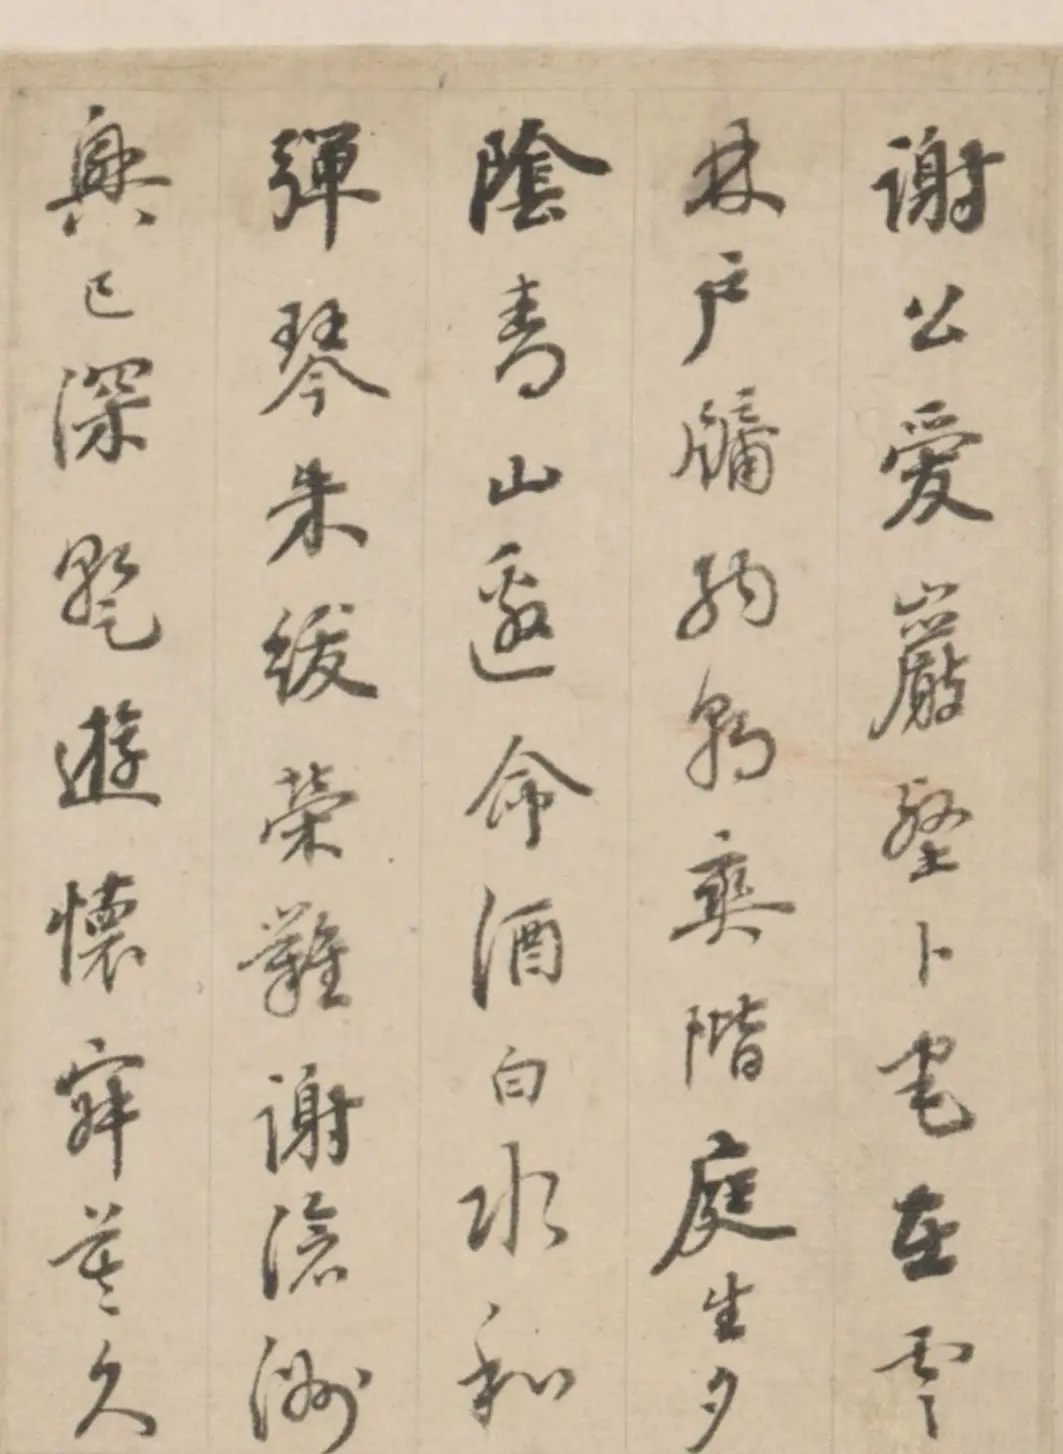 謝公愛巖壑卜宅在雲
林戶牖納朝爽階庭生夕
陰青山邀命酒白水和
彈琴朱紱榮難謝滄洲
興已深遊懷久